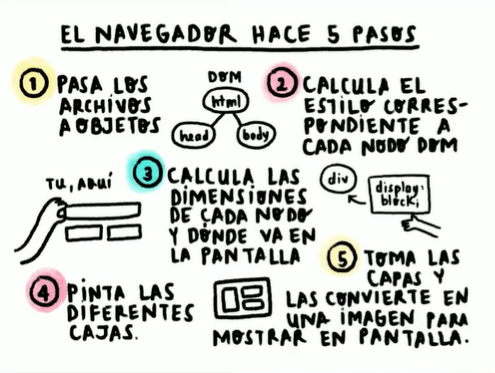 EL NAVEGADOR HACE 5 PASOS
1 PASA LOS
ARCHIVOS
A OBJETOS
DOM
html
head
body
2 CALCULA EL
ESTILO CORRES-
PONDIENTE A
CADA NODO DOM
TU, AQUÍ
3 CALCULA LAS
DIMENSIONES
DE CADA NODO
Y DÓNDE VA EN
LA PANTALLA
div
display:
block;
4 PINTA LAS
DIFERENTES
CAJAS.
5 TOMA LAS
CAPAS Y
LAS CONVIERTE EN
UNA IMAGEN PARA
MOSTRAR EN PANTALLA.